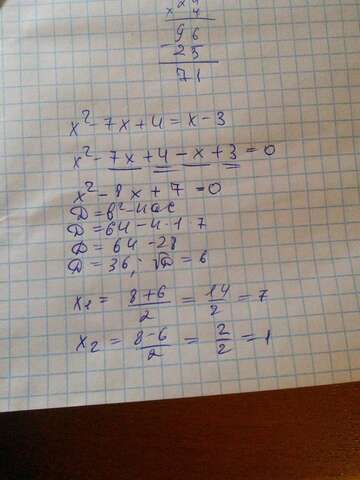 x 24
4
96
- 25
71
x² - 7x + 4 = x - 3
x² - 7x + 4 - x + 3 = 0
x² - 8x + 7 = 0
Д = в² - 4ас
Д = 64 - 4·1·7
Д = 64 - 28
Д = 36; √Д = 6
x₁ = (8+6)/2 = 14/2 = 7
x₂ = (8-6)/2 = 2/2 = 1